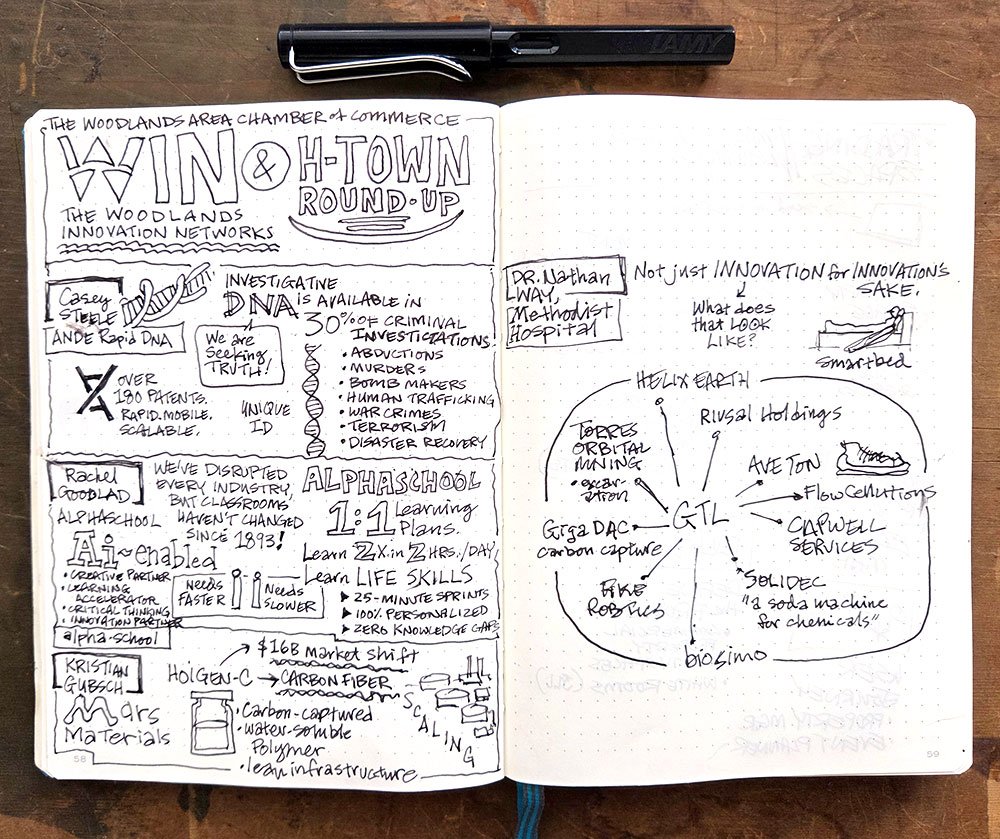 LAMY
THE WOODLANDS AREA CHAMBER of COMMERCE
WIN & H-TOWN
ROUND-UP
THE WOODLANDS
INNOVATION NETWORKS
Casey
STEELE
ANDE Rapid DNA
OVER
180 PATENTS.
RAPID. MOBILE.
SCALABLE.
We are
Seeking
TRUTH!
UNIQUE
ID
INVESTIGATIVE
DNA IS AVAILABLE IN
30% OF CRIMINAL
INVESTIGATIONS!
• ABDUCTIONS
• MURDERS
• BOMB MAKERS
• HUMAN TRAFFICKING
• WAR CRIMES
• TERRORISM
• DISASTER RECOVERY
Rachel
GOODLAD
ALPHASCHOOL
WE'VE DISRUPTED
EVERY INDUSTRY,
BUT CLASSROOMS
HAVEN'T CHANGED
SINCE 1893!
Ai-enabled
• CREATIVE PARTNER
• LEARNING
ACCELERATOR
• CRITICAL THINKING
• INNOVATION PARTNER
alpha-school
NEEDS
FASTER
NEEDS
SLOWER
ALPHASCHOOL
1:1 Learning
Plans.
Learn 2X in 2 HRS./DAY,
Learn LIFE SKILLS
▸ 25-MINUTE SPRINTS
▸ 100% PERSONALIZED
▸ ZERO KNOWLEDGE GAPS
KRISTIAN
GUBSCH
Mars
Materials
HOIGEN-C → CARBON FIBER
$16B market shift
• Carbon-captured
• water-soluble
Polymer
• lean infrastructure
SCALING
58
DR. Nathan
WAY,
Methodist
Hospital
Not just INNOVATION for INNOVATION'S
SAKE.
What does
that LOOK
LIKE?
Smartbed
HELIX EARTH
Rivsal Holdings
TORRES
ORBITAL
MINING
• excav-
ation
AVETON
FlowCellutions
GTL
GigaDAC
carbon capture
CAPWELL
SERVICES
FIKE
ROBOTICS
SOLIDEC
"a soda machine
for chemicals"
biosimo
59